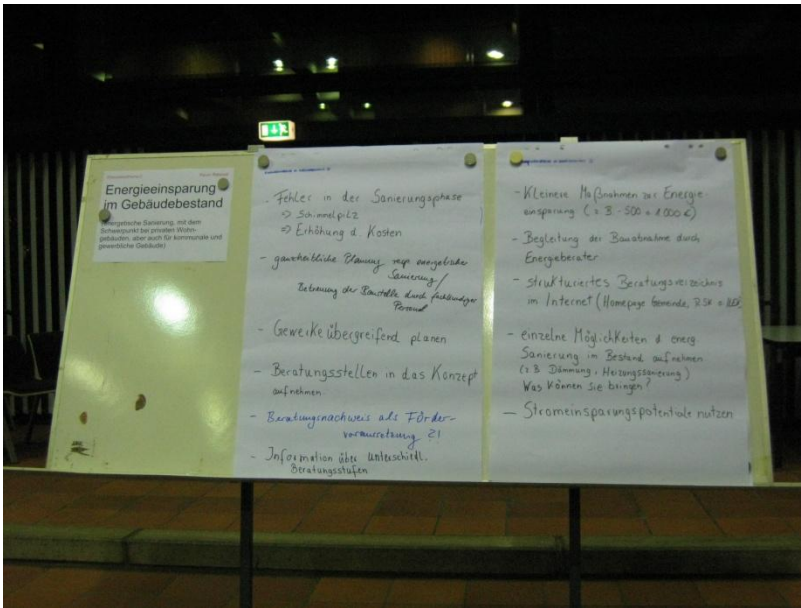 Energieeinsparung
im Gebäudebestand
(energetische Sanierung, mit dem
Schwerpunkt bei privaten Wohn-
gebäuden, aber auch für kommunale und
gewerbliche Gebäude)
- Fehler in der Sanierungsphase
=> Schimmelpilz
=> Erhöhung d. Kosten
- ganzheitliche Planung energetischer
Sanierung /
Betreuung der Baustelle durch fachkundiges
Personal
- Gewerke übergreifend planen
- Beratungsstellen in das Konzept
aufnehmen
- Beratungsnachweis als Förder-
voraussetzung ?!
- Information über unterschiedl.
Beratungsstufen
- Kleinere Maßnahmen zur Energie-
einsparung (z B 500 - 1000 €)
- Begleitung der Bauabnahme durch
Energieberater
- strukturiertes Beratungsverzeichnis
im Internet (Homepage Gemeinde,
- einzelne Möglichkeiten d energ.
Sanierung im Bestand aufnehmen
(z B Dämmung, Heizungssanierung)
Was können sie bringen?
- Stromeinsparungspotentiale nutzen